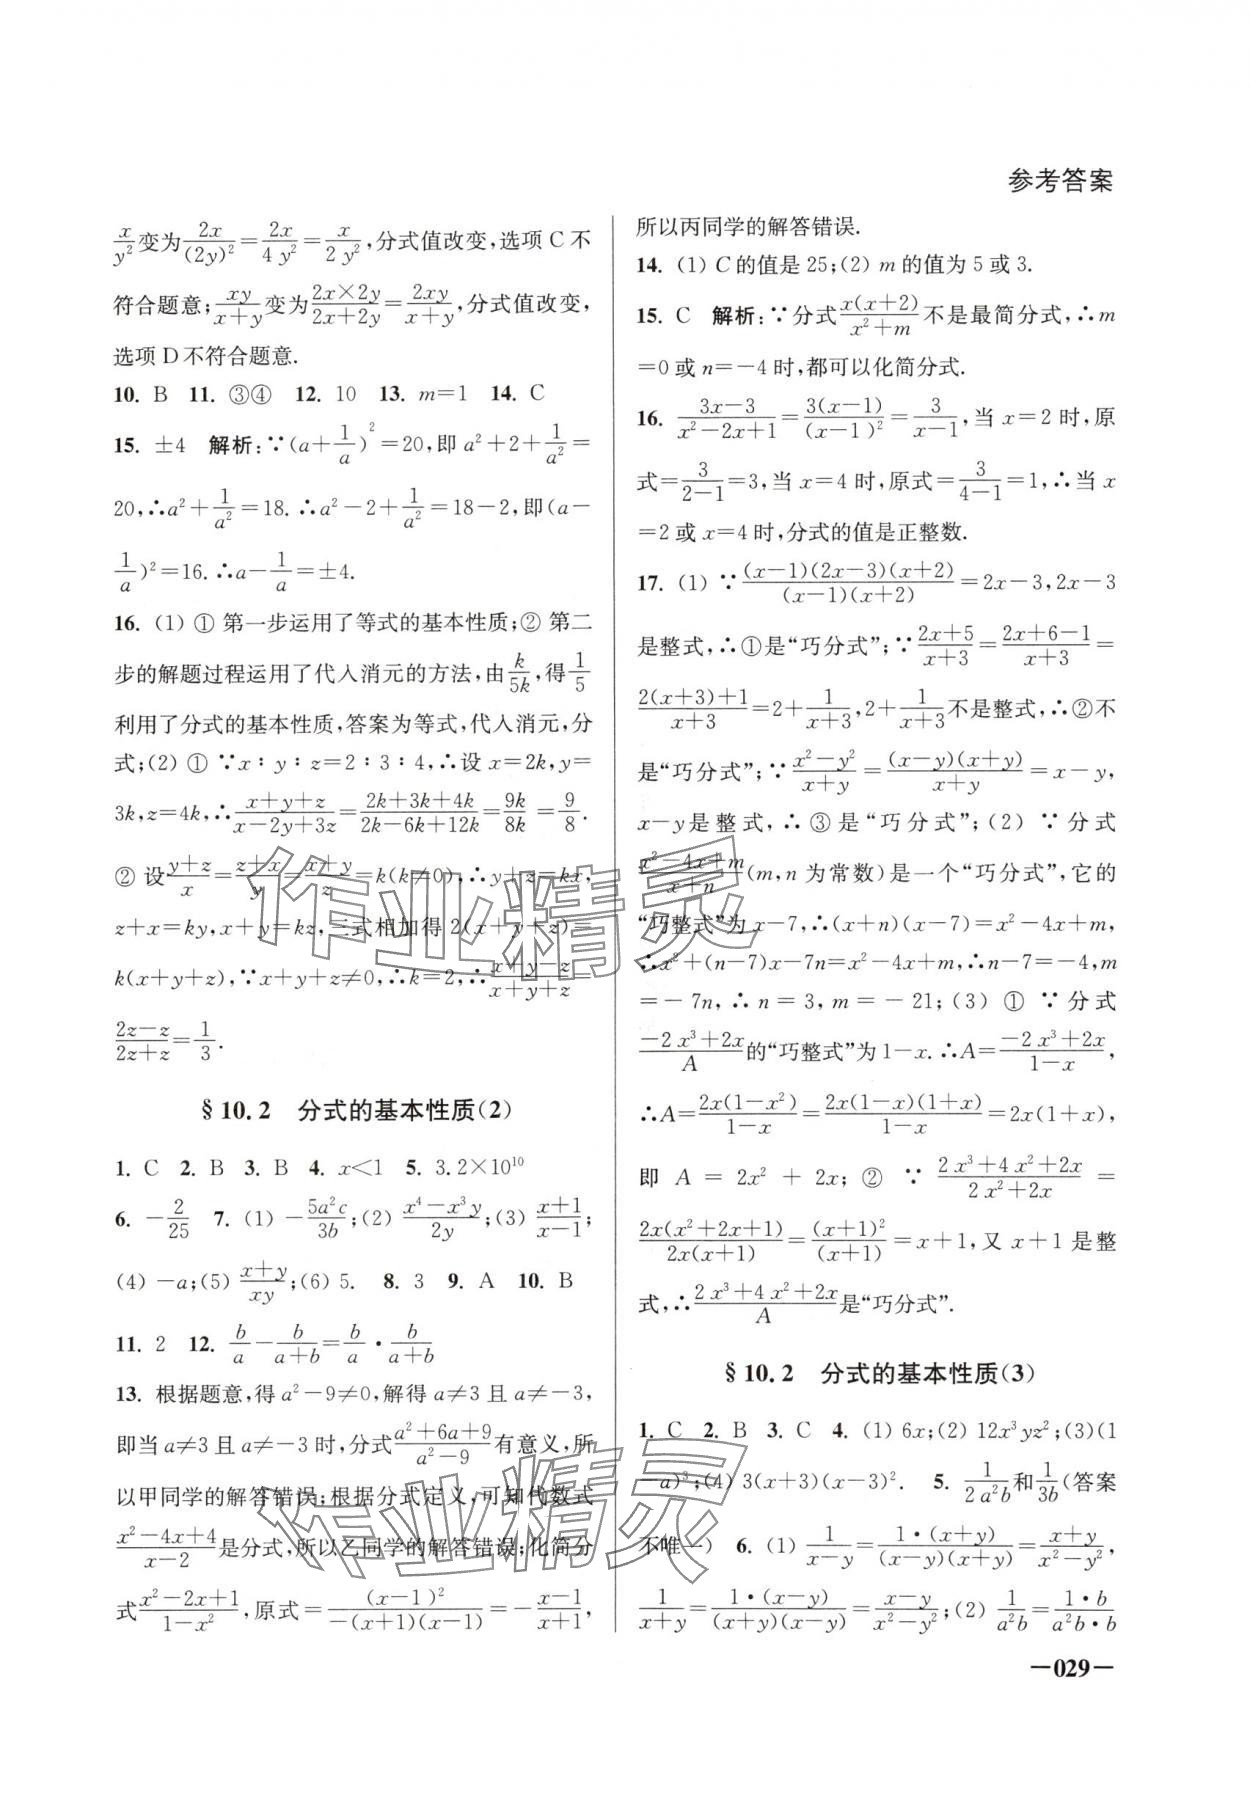 参考答案
x/y²变为2x/(2y)²=2x/4y²=x/2y²,分式值改变,选项C不
符合题意;xy/(x+y)变为(2x×2y)/(2x+2y)=2xy/(x+y),分式值改变,
选项D不符合题意.
10. B 11. ③④ 12. 10 13. m=1 14. C
15. ±4 解析:∵(a+1/a)²=20,即a²+2+1/a²=
20,∴a²+1/a²=18.∴a²-2+1/a²=18-2,即(a-
1/a)²=16.∴a-1/a=±4.
16. (1) ① 第一步运用了等式的基本性质;② 第二
步的解题过程运用了代入消元的方法,由k/5k,得1/5
利用了分式的基本性质,答案为等式,代入消元,分
式;(2) ① ∵x∶y∶z=2∶3∶4,∴设x=2k,y=
3k,z=4k,∴(x+y+z)/(x-2y+3z)=(2k+3k+4k)/(2k-6k+12k)=9k/8k=9/8.
② 设(y+z)/x=(z+x)/y=(x+y)/z=k(k≠0),∴y+z=kx,
z+x=ky,x+y=kz,三式相加得2(x+y+z)=
k(x+y+z),∵x+y+z≠0,∴k=2,∴(x+y-z)/(x+y+z)=
(2z-z)/(2z+z)=1/3.
§10.2 分式的基本性质(2)
1. C 2. B 3. B 4. x<1 5. 3.2×10¹⁰
6. -2/25 7. (1) -5a²c/3b;(2) (x⁴-x³y)/2y;(3) (x+1)/(x-1);
(4) -a;(5) (x+y)/xy;(6) 5. 8. 3 9. A 10. B
11. 2 12. b/a-b/(a+b)=b/a·b/(a+b)
13. 根据题意,得a²-9≠0,解得a≠3且a≠-3,
即当a≠3且a≠-3时,分式(a²+6a+9)/(a²-9)有意义,所
以甲同学的解答错误;根据分式定义,可知代数式
(x²-4x+4)/(x-2)是分式,所以乙同学的解答错误;化简分
式(x²-2x+1)/(1-x²),原式=(x-1)²/[-(x+1)(x-1)]=-(x-1)/(x+1),
所以丙同学的解答错误.
14. (1) C的值是25;(2) m的值为5或3.
15. C 解析:∵分式x(x+2)/(x²+m)不是最简分式,∴m
=0或n=-4时,都可以化简分式.
16. (3x-3)/(x²-2x+1)=3(x-1)/(x-1)²=3/(x-1),当x=2时,原
式=3/(2-1)=3,当x=4时,原式=3/(4-1)=1,∴当x
=2或x=4时,分式的值是正整数.
17. (1) ∵(x-1)(2x-3)(x+2)/(x-1)(x+2)=2x-3,2x-3
是整式,∴①是“巧分式”;∵(2x+5)/(x+3)=(2x+6-1)/(x+3)=
[2(x+3)+1]/(x+3)=2+1/(x+3),2+1/(x+3)不是整式,∴②不
是“巧分式”;∵(x²-y²)/(x+y)=(x-y)(x+y)/(x+y)=x-y,
x-y是整式,∴③是“巧分式”;(2) ∵分式
(x²-4x+m)/(x+n)(m,n为常数)是一个“巧分式”,它的
“巧整式”为x-7,∴(x+n)(x-7)=x²-4x+m,
∴x²+(n-7)x-7n=x²-4x+m,∴n-7=-4,m
=-7n,∴n=3,m=-21;(3) ① ∵分式
(-2x³+2x)/A的“巧整式”为1-x.∴A=(-2x³+2x)/(1-x),
∴A=2x(1-x²)/(1-x)=2x(1-x)(1+x)/(1-x)=2x(1+x),
即A=2x²+2x;② ∵(2x³+4x²+2x)/(2x²+2x)=
2x(x²+2x+1)/2x(x+1)=(x+1)²/(x+1)=x+1,又x+1是整
式,∴(2x³+4x²+2x)/A是“巧分式”.
§10.2 分式的基本性质(3)
1. C 2. B 3. C 4. (1) 6x;(2) 12x³yz²;(3)(1
-a)³;(4) 3(x+3)(x-3)². 5. 1/2a²b和1/3b(答案
不唯一) 6. (1) 1/(x-y)=1·(x+y)/(x-y)(x+y)=(x+y)/(x²-y²),
1/(x+y)=1·(x-y)/(x+y)(x-y)=(x-y)/(x²-y²);(2) 1/a²b=1·b/a²b·b
—029—
作业精灵
作业精灵